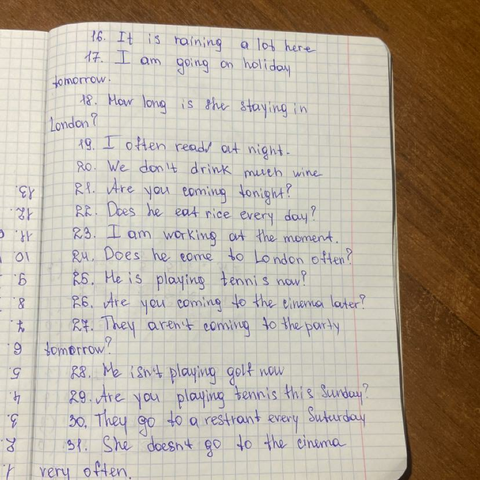 16. It is raining a lot here
17. I am going on holiday
tomorrow.
18. How long is she staying in
London?
19. I often read at night.
20. We don't drink much wine
21. Are you coming tonight?
22. Does he eat rice every day?
23. I am working at the moment.
24. Does he come to London often?
25. He is playing tennis now?
26. Are you coming to the cinema later?
27. They aren't coming to the party
tomorrow?
28. He isn't playing golf now
29. Are you playing tennis this Sunday?
30. They go to a restrant every Saturday
31. She doesn't go to the cinema
very often.
13.
12.
11.
10
9.
8.
7.
6.
5.
4.
3.
2.
1.